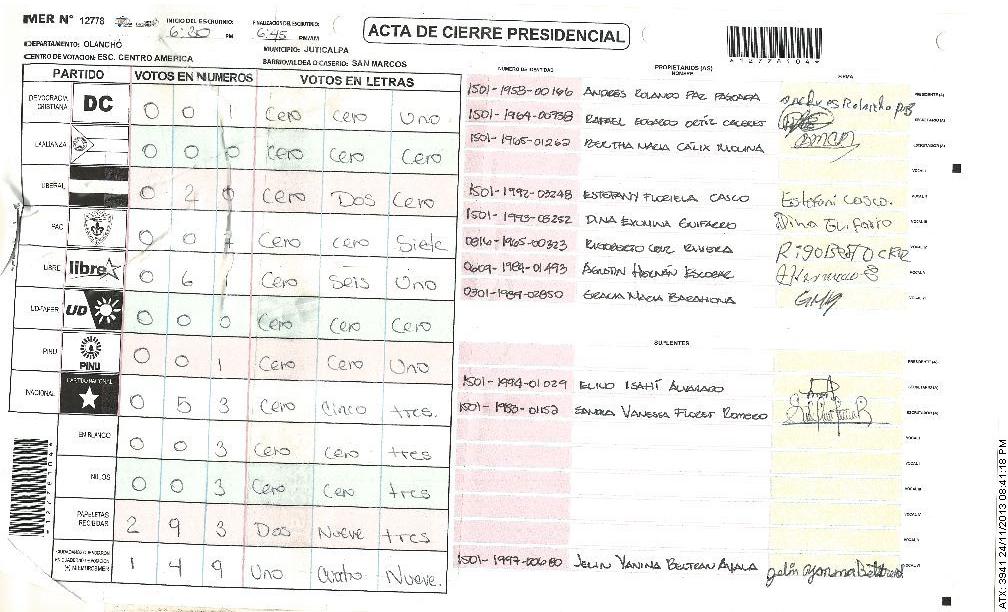 MER N° 12778
INICIO DEL ESCRUTINIO: 6:20 PM
FINALIZACION DEL ESCRUTINIO: 6:45 PM
ACTA DE CIERRE PRESIDENCIAL
*12778104*
DEPARTAMENTO: OLANCHO
MUNICIPIO: JUTICALPA
CENTRO DE VOTACION: ESC. CENTRO AMERICA
BARRIO/ALDEA O CASERIO: SAN MARCOS
PARTIDO VOTOS EN NUMEROS VOTOS EN LETRAS
DEMOCRACIA CRISTIANA DC 0 0 1 Cero Cero Uno
ALIANZA 0 0 0 Cero Cero Cero
LIBERAL 0 2 0 Cero Dos Cero
PAC 0 0 7 Cero Cero Siete
LIBRE libre 0 6 1 Cero Seis Uno
UD-FAPER UD 0 0 0 Cero Cero Cero
PINU PINU 0 0 1 Cero Cero Uno
NACIONAL PARTIDO NACIONAL 0 5 3 Cero Cinco tres.
EN BLANCO 0 0 3 Cero Cero tres
NULOS 0 0 3 Cero Cero tres
PAPELETAS RECIBIDAS 2 9 3 Dos Nueve tres
1 4 9 Uno Cuatro Nueve.
*12778104*
NUMERO DE IDENTIDAD PROPIETARIOS (AS) NOMBRE FIRMA
1501-1958-00166 ANDRES ROLANDO PAZ PRESIDENTE (A)
1501-1964-00938 RAFAEL EDGARDO ORTIZ CACERES SECRETARIO (A)
1501-1965-01262 BERTHA MARIA CALIX MOLINA ESCRUTADOR (A)
VOCAL I
1501-1992-03248 ESTEFANY FLORIELA CASCO Estefani Casco. VOCAL II
DINA GUIFARRO Dina Guifarro VOCAL III
0816-1965-00323 RIGOBERTO CRUZ RIVERA RIGOBERTO CRUZ VOCAL IV
0609-1984-01493 AGUSTIN HERNAN ESCOBAR VOCAL V
0301-1989-02850 GRACIA MARIA BARAHONA GMB VOCAL VI
SUPLENTES
PRESIDENTE (A)
1501-1994-01029 ISAHÍ ALVARADO SECRETARIO (A)
1501-1983-01152 SANDRA VANESSA FLORES ROMERO ESCRUTADOR (A)
VOCAL I
VOCAL II
VOCAL III
VOCAL IV
VOCAL V
1501-1997-00680 JELIN YANINA BELTRAN AYALA VOCAL VI
ATX: 3941 24/11/2013 08:41:18 PM